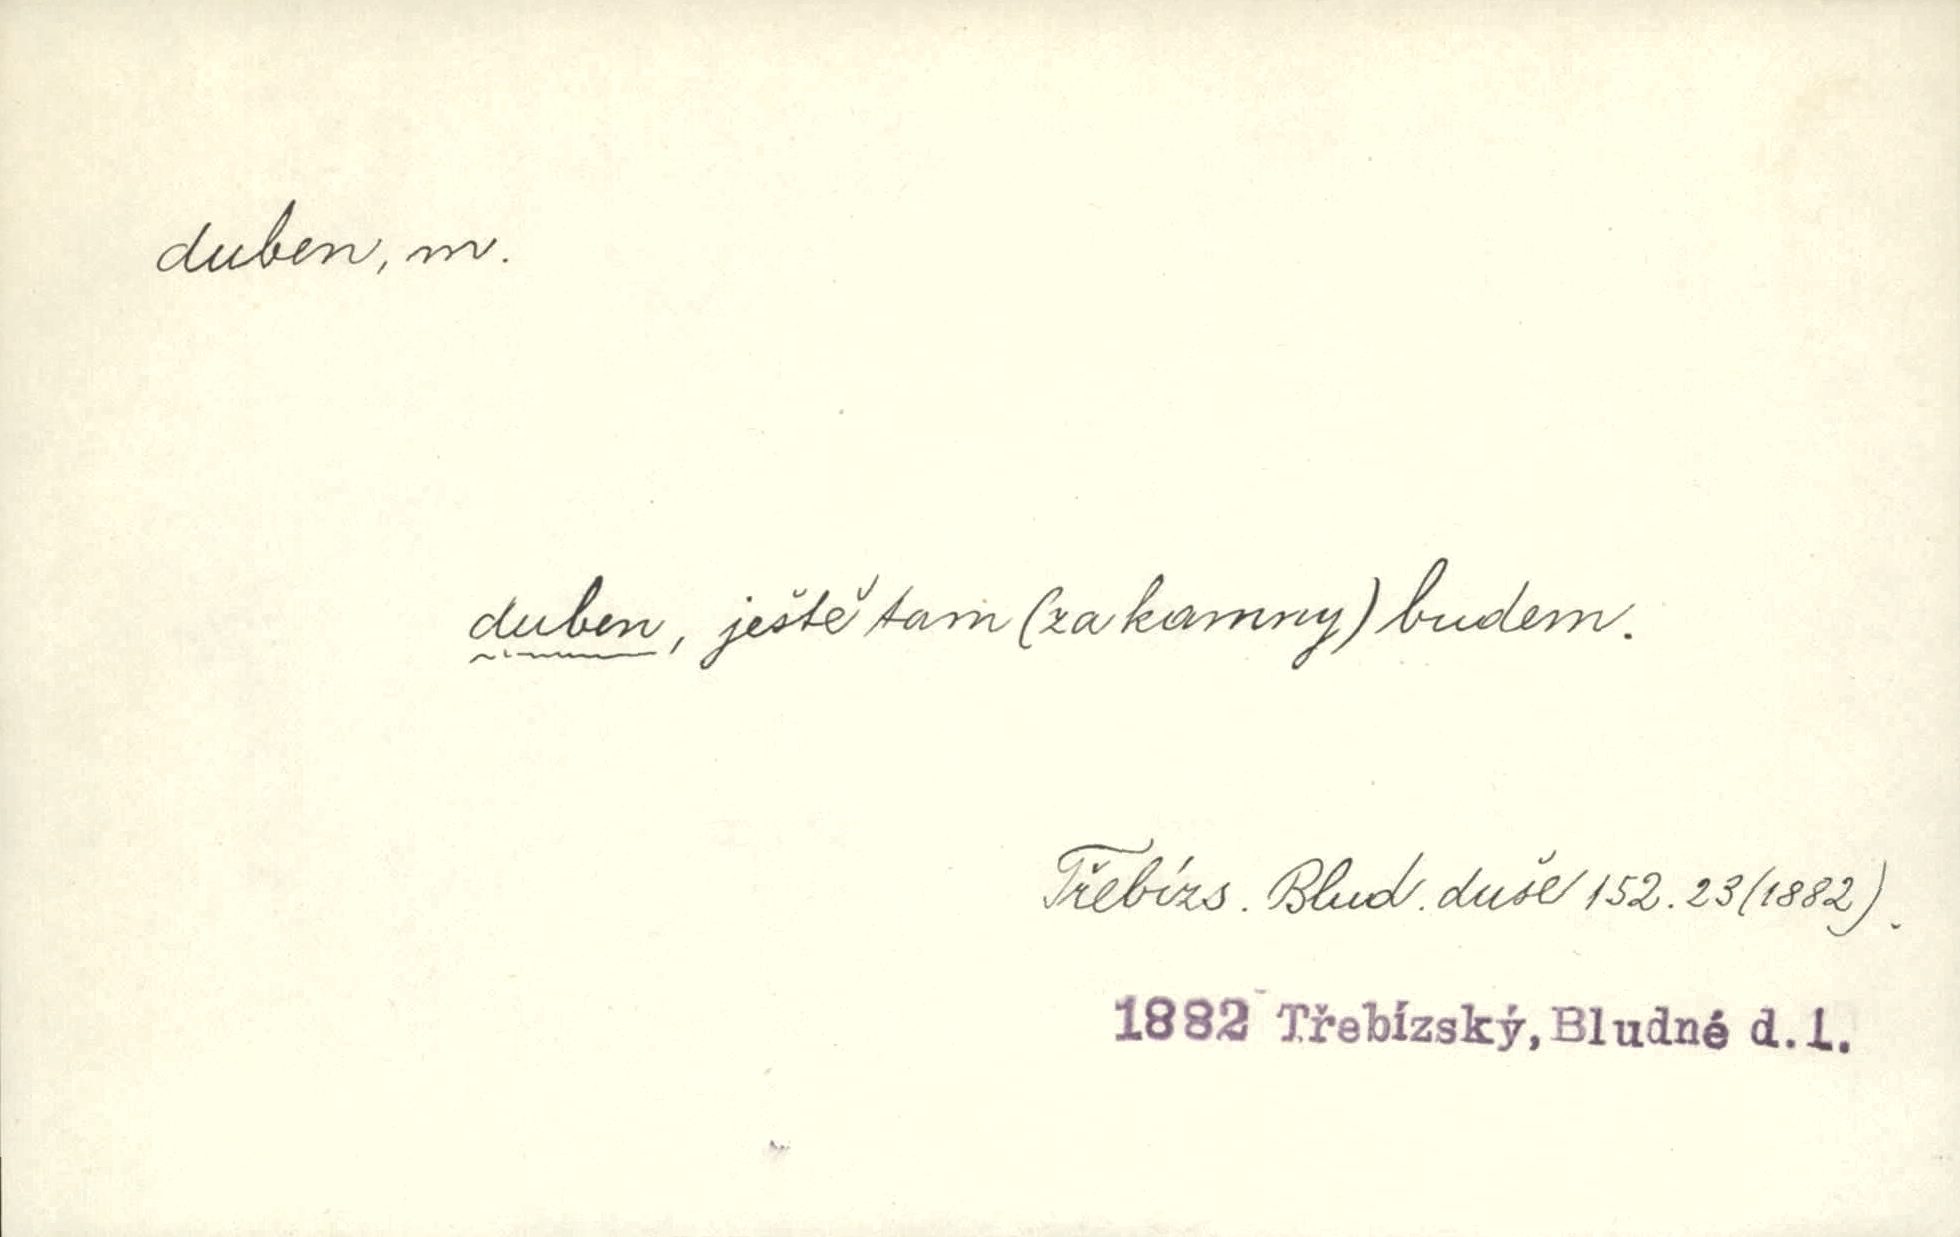 duben, m.
duben, ještě tam (za kamny) budem.
Třebízs. Blud. duše 152. 23 (1882).
1882 Třebízský, Bludné d.1.